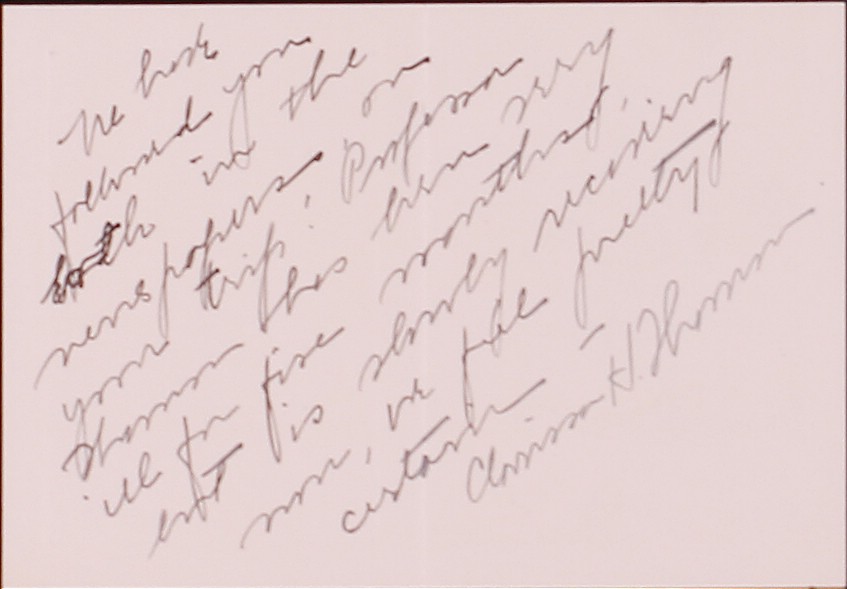 We have
followed you
both in the
newspapers on
your trip. Professor
Thomson has been very
ill for five months,
but is slowly recovering
now, we feel pretty
certain –
Clarissa H. Thomson